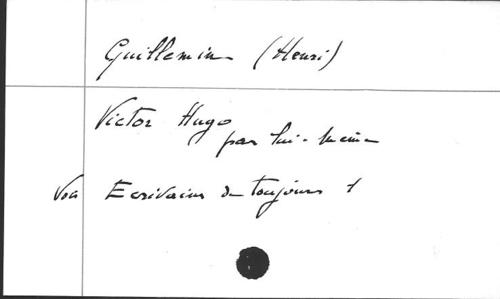 Guillemin (Henri)
Victor Hugo
par lui-même
Voir Ecrivains de toujours 1